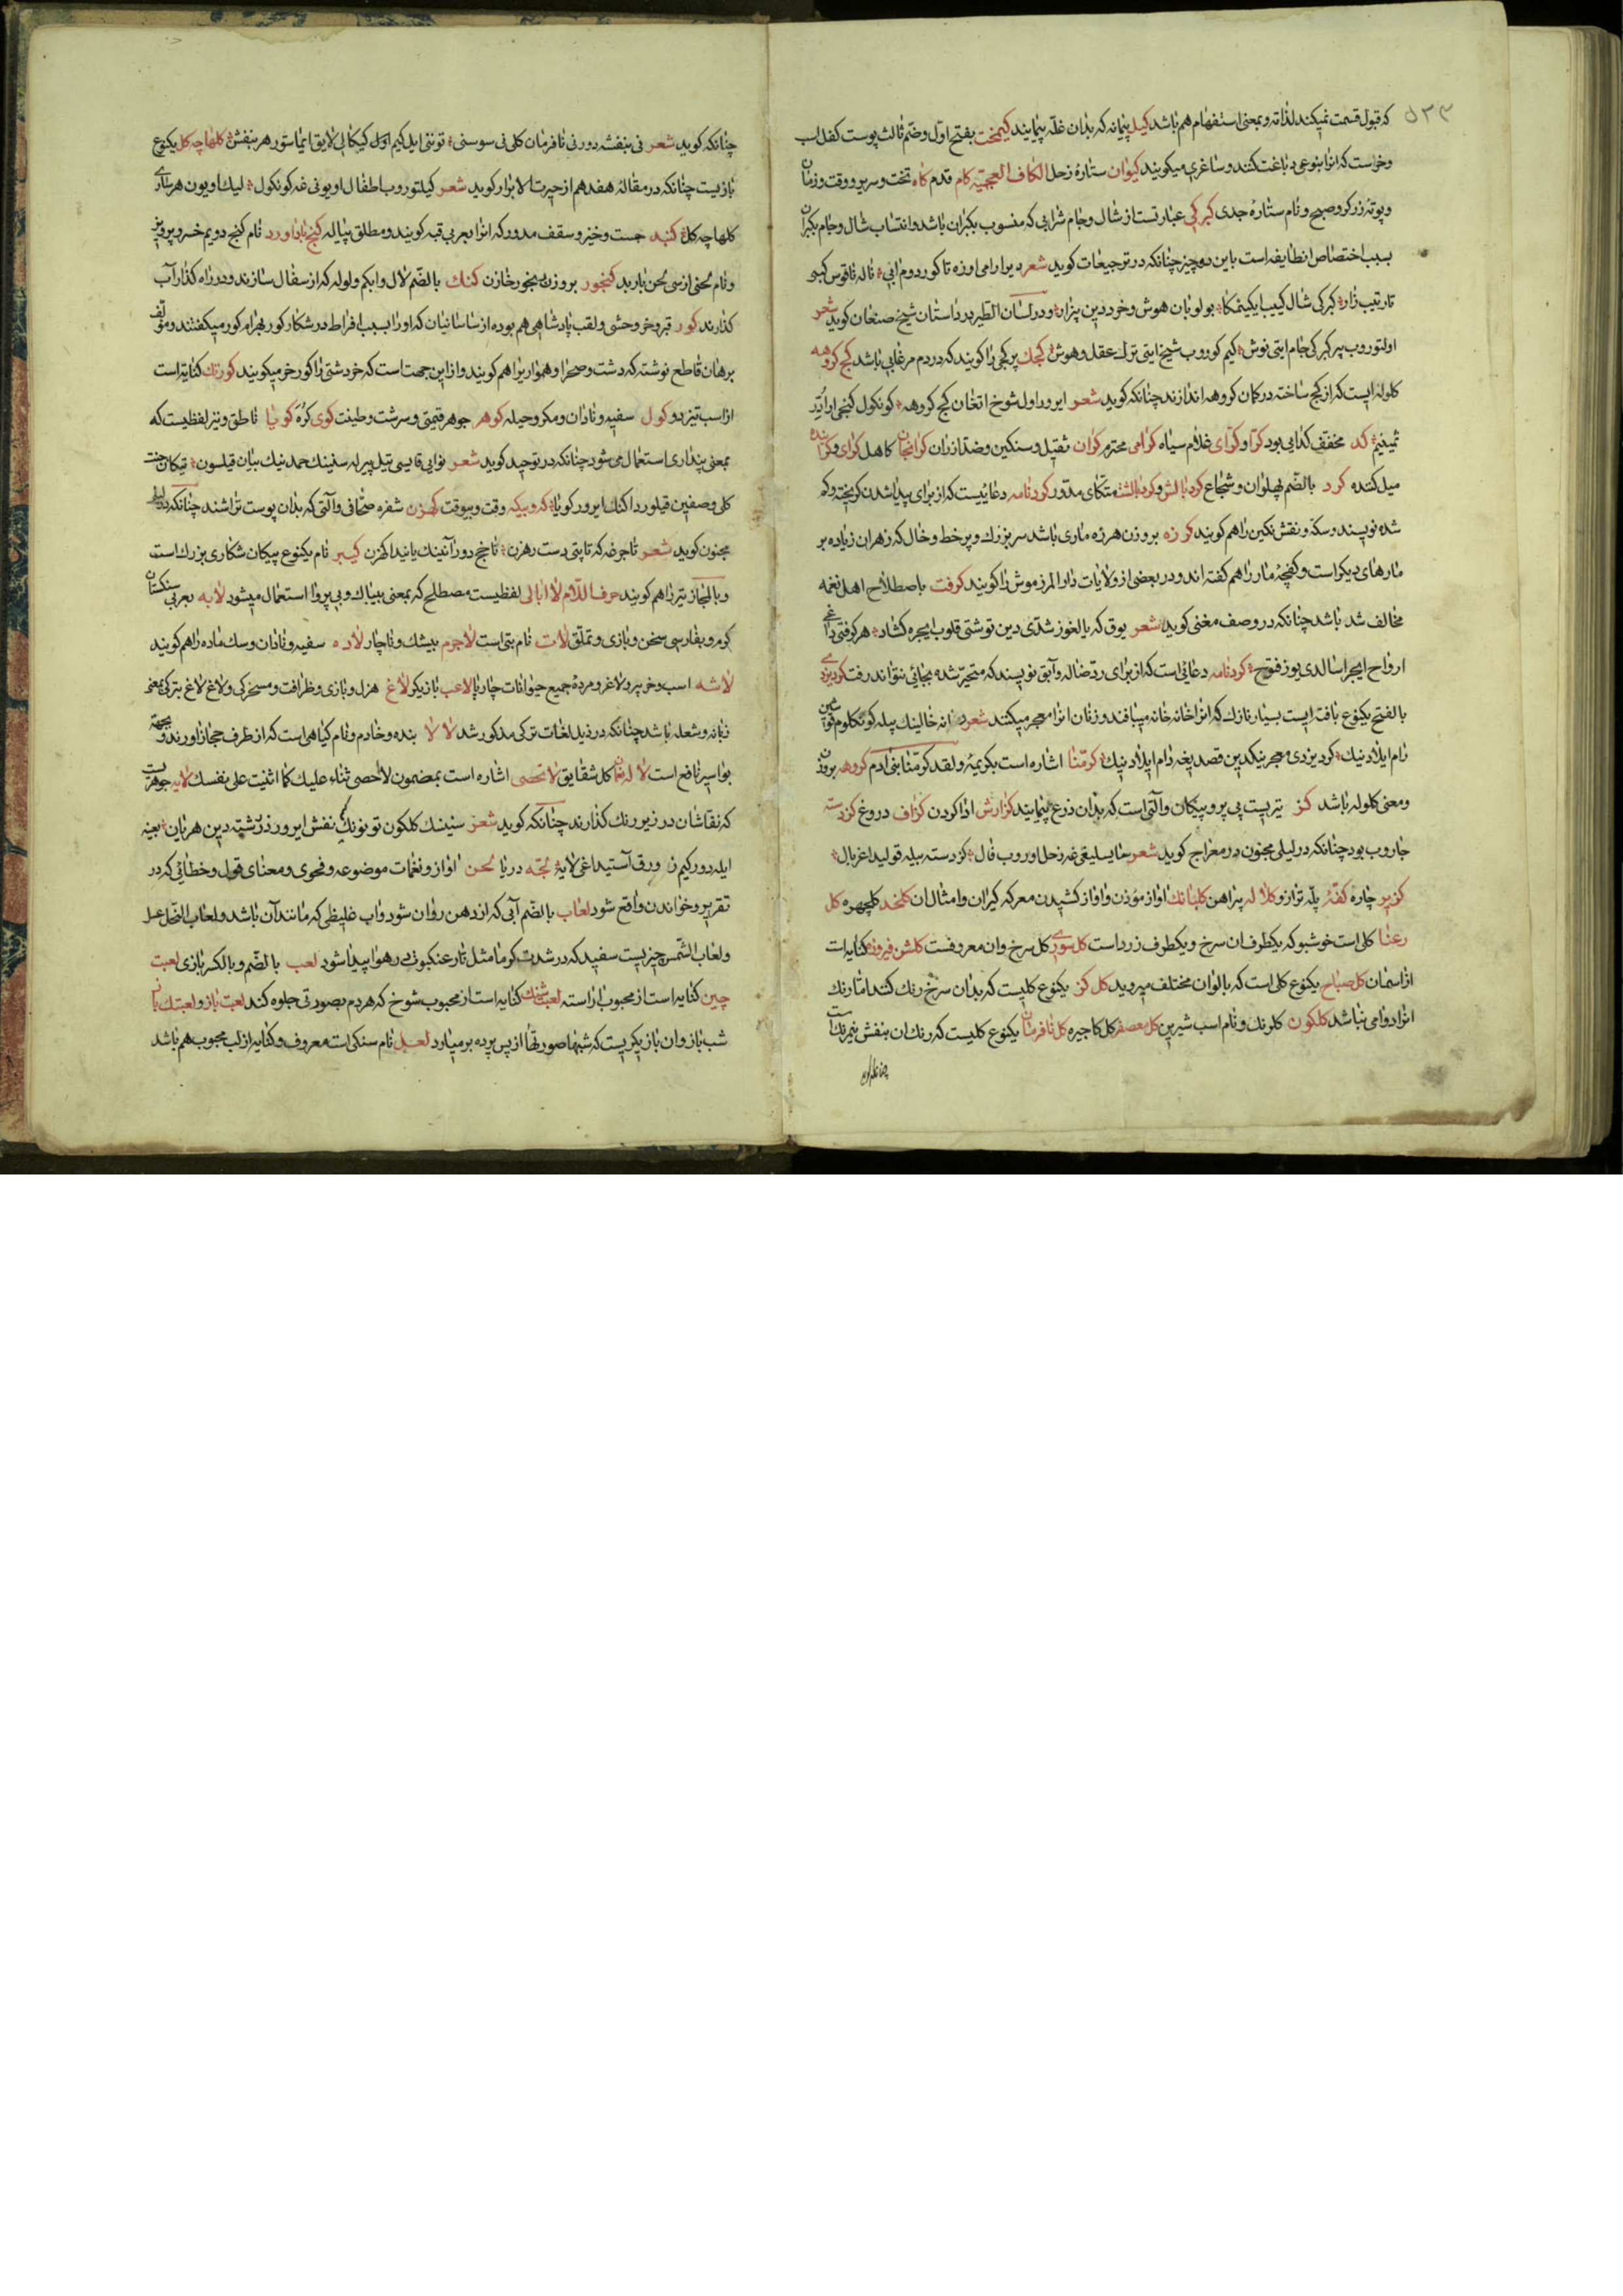 ۵۳۳
که قبول قسمت نمیکند لذاته و بمعنی استفهام هم باشد کیل پیمانه که بدان غله پیمایند کیمخت بفتح اول و ضم ثالث پوست کفل اسب
و خر است که انرا بنوعی دباغت کنند و ساغری میکویند کیوان ستارهٔ زحل الکاف العجمیّه کام قدم کاه تخت و سریر و وقت و زمان
و بوتهٔ زرکر و صبح و نام ستارهٔ جدی کبرکی عبارتست از شال و جام شرابی که منسوب بکبران باشد و انتساب شال و جام بکبران
بسبب اختصاص انطایفه است باین دو چیز چنانکه در ترجیعات کوید شعر دیرارامی اوزه تا کوردوم انی نالهٔ ناقوس کبی
تارتیب زار کبرکی شال کییب ایکینمکا بولوبان هوش و خرد دین بیزار و در لسان الطیر در داستان شیخ صنعان کوید شعر
اولتوروب پیر کبرکی جام ایتی نوش کیم کوروب شیخ ایتی ترک عقل و هوش کجک پر کجی را کویند که در دم مرغابی باشد کج کروهه
کلوله ایست که از کج ساخته در کمان کروهه اندازند چنانکه کوید شعر ایرور اول شوخ اتغان کج کروهه کونکول کنجی ارا
ثمینیم کد مخفف کدایی بود کرا و کرای غلام سیاه کرامی محترم کران ثقیل و سنکین و ضد ارزان کرانجان کاهل کرای و کراینده
میل کننده کرد بالضم پهلوان و شجاع کرد بالش و کرد بالشت متکای مدور کرد نامه دعائیست که از برای پیدا شدن کریخته و کم
شده نویسند و سکه و نقش نکین را هم کویند کرزه بر وزن هرزه ماری باشد سر بزرک و پر خط و خال که زهر ان زیاده بر
مارهای دیکر است و کفچهٔ مار را هم کفته اند و در بعضی از ولایات دار المرز موش را کویند کرفت باصطلاح اهل نغمه
مخالف شد باشد چنانکه در وصف مغنی کوید شعر یوق که یالغوز شدّی دین توشتی قلوب ایچره کشاد هر کرفتی داغی
ارواح ایچرا سالدی یوز فتوح کرد نامه دعائی است که از برای ردّ ضاله و آبق نویسند که متحیّر شده بجائی نتواند رفت کردیزدی
بالفتح یکنوع بافته ایست بسیار نازک که انرا خانه خانه میبافند و زنان انرا معجر میکنند شعر دانه خالینک بیله کونکلوم
رام ایلادینک کردیزدی معجرینکدین قصد یغه دام ایلادینک کرّمنا اشاره است بکریمهٔ ولقد کرّمنا بنی آدم کروهه بر وزن
و معنی کلوله باشد کز تیریست بی پر و پیکان و آلتی است که بدان ذرع پیمایند کزارش ادا کردن کزاف دروغ کزدسته
جاروب بود چنانکه در لیلی مجنون در معراج کوید شعر سایسلیقی غه زحل اوروب فال کزدسته بیله قولیدا غربال
کزیر چاره کفّه پلّه ترازو کلاله پیراهن کلبانک اواز مؤذن و اواز کشیدن معرکه کیران و امثال ان کلخد کلچهره کل
رعنا کلی است خوشبو که یکطرف ان سرخ و یکطرف زرد است کل سوری کل سرخ و ان معروفست کلشن فیروزه کنایه است
از اسمان کل صباح یکنوع کلی است که بالوان مختلف میروید کل کز یکنوع کلیست که بدان سرخ رنک کنند اما رنک
انرا دوامی نباشد کلکون کلرنک و نام اسب شیرین کل معصفر کل کاجیره کل نافرمان یکنوع کلیست که رنک ان بنفش نیمرنک است
چنانکه کوید شعر نی بنفشه دور نی نافرمان کلی نی سوسنی تونتی ایل کیم اول کیکالی لایق ایماستور هر بنفش کلهاچه کل یکنوع
بازیست چنانکه در مقالهٔ هفدهم از حیرت الابرار کوید شعر کیلتوروب اطفال اویونی غه کونکول لیک اویون هر ساری
کلهاچه کل کنبد جست و خیز و سقف مدور که انرا بعربی قبه کویند و مطلق پیاله کنج باداورد نام کنج دویم خسرو پرویز
و نام لحنی از سی لحن باربد کنجور بر وزن رنجور خازن کنک بالضم لال و ابکم و لوله که از سفال سازند و در راه کذار آب
کذارند کور قبر و خر وحشی و لقب پادشاهی هم بوده از ساسانیان که او را بسبب افراط در شکار کور بهرام کور میکفتند و مؤلف
برهان قاطع نوشته که دشت و صحرا و هموار را هم کویند و از این جهت است که خر دشتی را کور خر میکویند کورتک کنایه است
از اسب تیز دو کول سفیه و نادان و مکر و حیله کوهر جوهر قیمتی و سرشت و طینت کوی کُره کویا ناطق و نیز لفظیست که
بمعنی پنداری استعمال می شود چنانکه در توحید کوید شعر نوایی قایسی تیل بیرله سنینک حمدینک بیان قیلسون تیکان جنت
کلی وصفین قیلور دا کنک ایرور کویا که و بیکه وقت و بیوقت کهزن شفره صحافی و آلتی که بدان پوست تراشند چنانکه در لیلی
مجنون کوید شعر تاجرغه که تاپتی دست رهزن تاخج دور آنینک یانیدا کهزن کیبر نام یکنوع پیکان شکاری بزرک است
و بالمجاز تیر را هم کویند حرف اللام لا ابالی لفظیست مصطلح که بمعنی بیباک و بی پروا استعمال میشود لابه بعربی سنکستان
کرم و بفارسی سخن و بازی و تملق لات نام بتی است لاجرم بیشک و ناچار لاده سفیه و نادان و سک ماده را هم کویند
لاشه اسب و خر پیر و لاغر و مرده جمیع حیوانات چارپا لاعب بازیکر لاغ هزل و بازی و ظرافت و مسخرکی و لاغ لاغ بترکی بمعنی
زبانه و شعله باشد چنانکه در ذیل لغات ترکی مذکور شد لالا بنده و خادم و نام کیاهی است که از طرف حجاز اورند و بجهة
بواسیر نافع است لاله نعمان کل شقایق لا تحصی اشاره است بمضمون لا احصی ثناء علیک کما اثنیت علی نفسک لایه جوهریست
که نقاشان در زیر رنک کذارند چنانکه کوید شعر سنینک کلکون تونونک نقش ایرور زر رشته دین هر یان بعینه
ایله دور کیم زر ورق آستیداغی لایه لجّه دریا لحن اواز و نغمات موضوعه و فحوی و معنای قول و خطائی که در
تقریر و خواندن واقع شود لعاب بالضم آبی که از دهن روان شود و اب غلیظی که مانند آن باشد و لعاب النحل عسل
و لعاب الشمس چیزیست سفید که در شدت کرما مثل تار عنکبوت در هوا پیدا شود لعب بالضم و بالکسر بازی لعبت
چین کنایه است از محبوب اراسته لعبت شنک کنایه است از محبوب شوخ که هر دم بصورتی جلوه کند لعبت باز و لعبتک باز
شب باز و ان بازیکریست که شبها صورتها از پس پرده بر میاورد لعل نام سنکی است معروف و کنایه از لب محبوب هم باشد